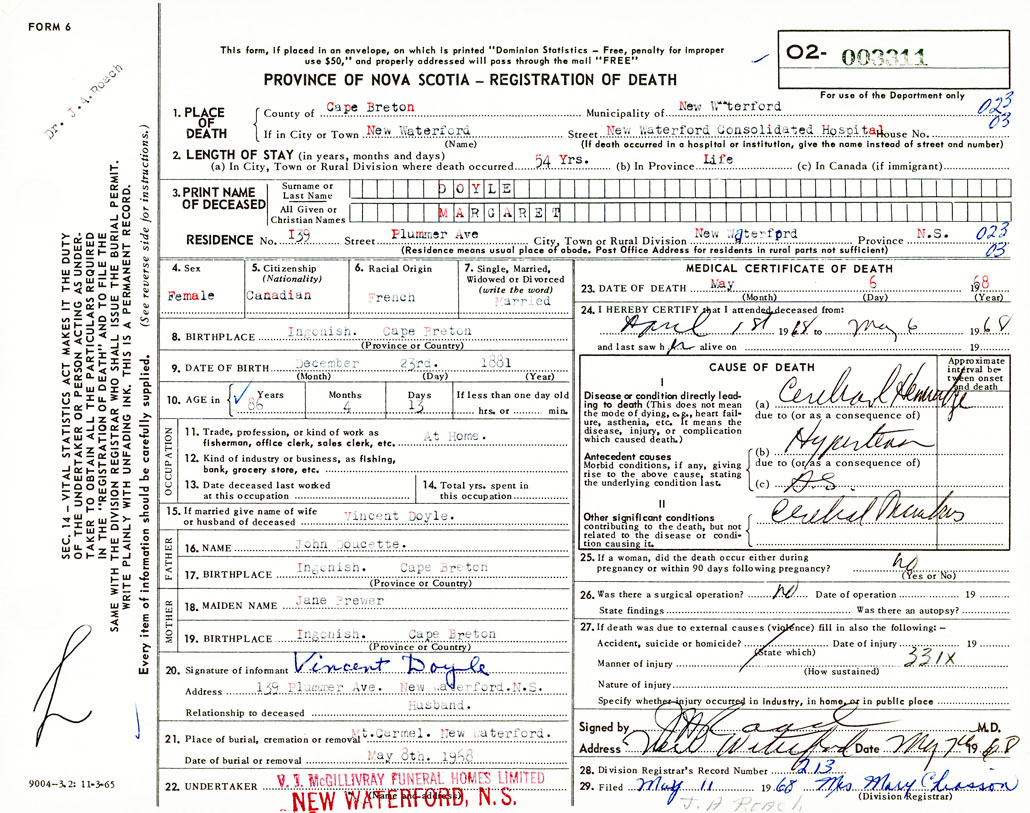 FORM 6
Dr. J.A. Roach
This form, if placed in an envelope, on which is printed "Dominion Statistics – Free, penalty for improper
use $50," and properly addressed will pass through the mail "FREE"
PROVINCE OF NOVA SCOTIA – REGISTRATION OF DEATH
O2- 003311
For use of the Department only
1. PLACE OF DEATH
County of Cape Breton Municipality of New Waterford 023
03
If in City or Town New Waterford Street New Waterford Consolidated Hospital House No.
(Name) (If death occurred in a hospital or institution, give the name instead of street and number)
2. LENGTH OF STAY (in years, months and days)
(a) In City, Town or Rural Division where death occurred 54 Yrs. (b) In Province Life (c) In Canada (if immigrant)
3. PRINT NAME OF DECEASED
Surname or Last Name DOYLE
All Given or Christian Names MARGARET
RESIDENCE No. I39 Street Plummer Ave City, Town or Rural Division New Waterford Province N.S. 023
03
(Residence means usual place of abode. Post Office Address for residents in rural parts not sufficient)
4. Sex
Female
5. Citizenship
(Nationality)
Canadian
6. Racial Origin
French
7. Single, Married,
Widowed or Divorced
(write the word)
Married
8. BIRTHPLACE Ingonish. Cape Breton
(Province or Country)
9. DATE OF BIRTH December 23rd. 1881
(Month) (Day) (Year)
10. AGE in Years Months Days If less than one day old
86 4 13 hrs. or min.
OCCUPATION
11. Trade, profession, or kind of work as
fisherman, office clerk, sales clerk, etc. At Home.
12. Kind of industry or business, as fishing,
bank, grocery store, etc.
13. Date deceased last worked
at this occupation
14. Total yrs. spent in
this occupation
15. If married give name of wife
or husband of deceased Vincent Doyle.
FATHER
16. NAME John Doucette.
17. BIRTHPLACE Ingonish. Cape Breton
(Province or Country)
MOTHER
18. MAIDEN NAME Jane Brewer
19. BIRTHPLACE Ingonish. Cape Breton
(Province or Country)
20. Signature of informant Vincent Doyle
Address 139 Plummer Ave. New Waterford.N.S.
Relationship to deceased Husband.
21. Place of burial, cremation or removal Mt.Carmel. New Waterford.
Date of burial or removal May 8th. 1968
22. UNDERTAKER V. J. McGILLIVRAY FUNERAL HOMES LIMITED
(Name and address)
NEW WATERFORD, N. S.
MEDICAL CERTIFICATE OF DEATH
23. DATE OF DEATH May 6 1968
(Month) (Day) (Year)
24. I HEREBY CERTIFY that I attended deceased from:
April 1st 1968 to May 6 1968
and last saw her alive on 19
CAUSE OF DEATH
Approximate
interval be-
tween onset
and death
I
Disease or condition directly lead-
ing to death (This does not mean
the mode of dying, e.g., heart fail-
ure, asthenia, etc. It means the
disease, injury, or complication
which caused death.)
(a) Cerebral Hemorrhage
due to (or as a consequence of)
Antecedent causes
Morbid conditions, if any, giving
rise to the above cause, stating
the underlying condition last.
(b) Hypertension
due to (or as a consequence of)
(c) A.S.
II
Other significant conditions
contributing to the death, but not
related to the disease or condi-
tion causing it.
Cerebral
25. If a woman, did the death occur either during
pregnancy or within 90 days following pregnancy? no
(Yes or No)
26. Was there a surgical operation? no Date of operation 19
State findings Was there an autopsy?
27. If death was due to external causes (violence) fill in also the following: –
Accident, suicide or homicide? Date of injury 19
(State which)
Manner of injury 331X
(How sustained)
Nature of injury
Specify whether injury occurred in Industry, in home, or in public place
Signed by J A Roach M.D.
Address New Waterford Date May 7 1968
28. Division Registrar's Record Number 213
29. Filed May 11 1968 Mrs Mary Chiasson
(Division Registrar)
J. A ROACH
SEC. 14 – VITAL STATISTICS ACT MAKES IT THE DUTY
OF THE UNDERTAKER OR PERSON ACTING AS UNDER-
TAKER TO OBTAIN ALL THE PARTICULARS REQUIRED
IN THE "REGISTRATION OF DEATH" AND TO FILE THE
SAME WITH THE DIVISION REGISTRAR WHO SHALL ISSUE THE BURIAL PERMIT.
WRITE PLAINLY WITH UNFADING INK. THIS IS A PERMANENT RECORD.
Every item of information should be carefully supplied. (See reverse side for instructions.)
9004-3.2: 11-3-65